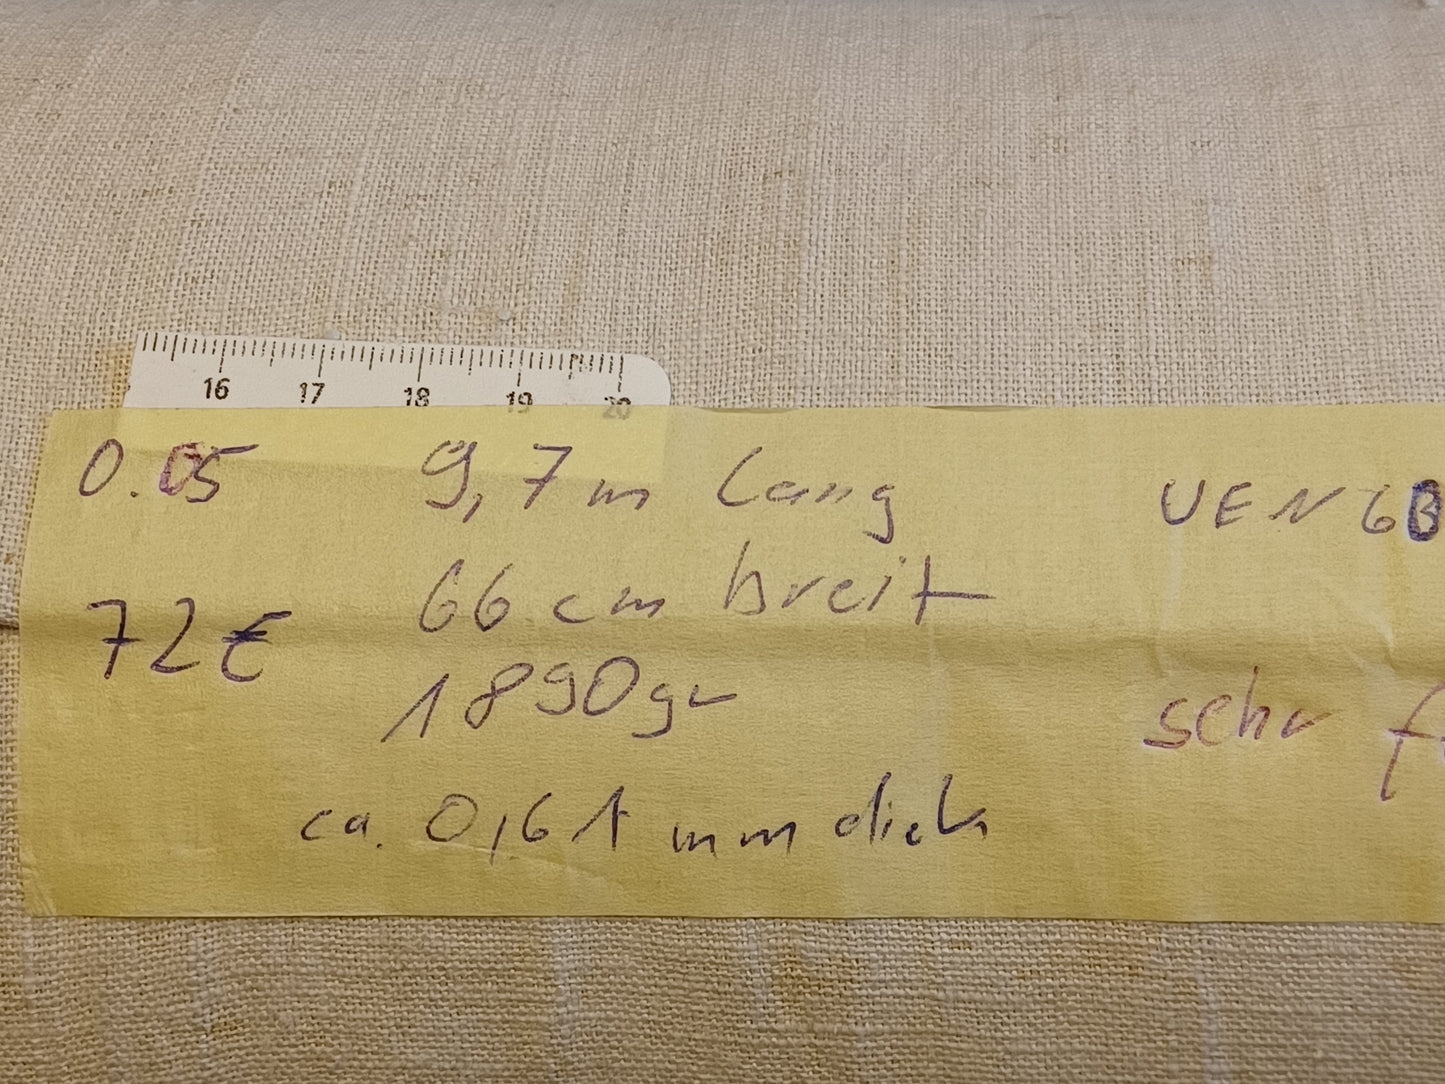 16 17 18 19 20
0.05 9,7 m lang UEN6B
66 cm breit
72€
1890gr
sehr
ca. 0,61 mm dick